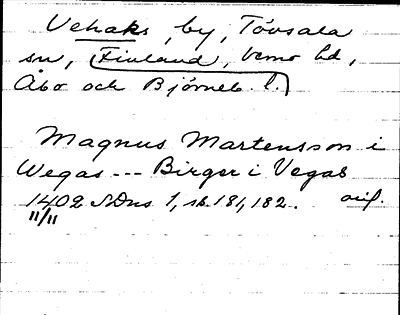 Vehaks, by, Tövsala
sn, Finland, Vemo hd,
Åbo och Björneb. l.
Magnus Martensson i
Wegas --- Birger i Vegas
1402 SDns 1, s. 181, 182. orig.
11/11